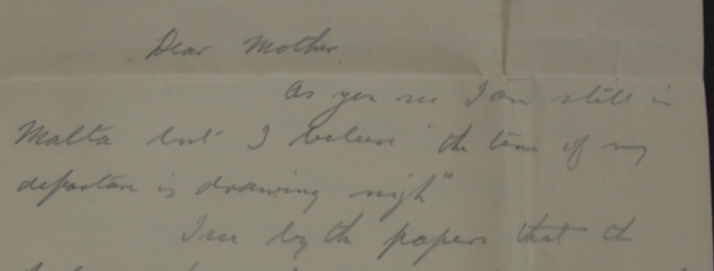 Dear Mother
As you see I am still in
Malta but I believe "the time of my
departure is drawing nigh"
I see by the papers that the